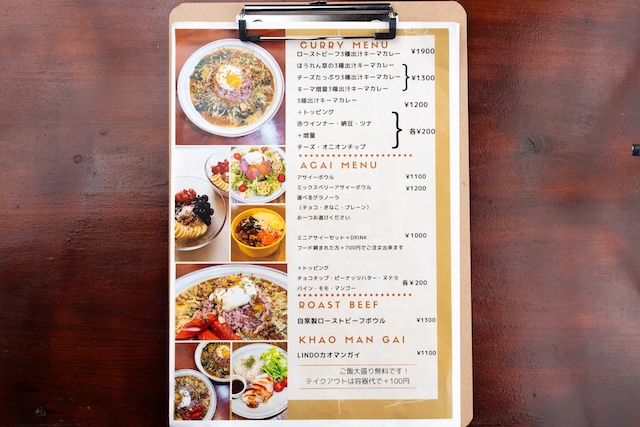 CURRY MENU
ローストビーフ3種出汁キーマカレー ¥1900
ほうれん草の3種出汁キーマカレー
チーズたっぷり3種出汁キーマカレー ¥1300
キーマ増量3種出汁キーマカレー
3種出汁キーマカレー ¥1200
+トッピング
赤ウインナー・納豆・ツナ
+増量 各¥200
チーズ・オニオンチップ
ACAI MENU
アサイーボウル ¥1100
ミックスベリーアサイーボウル ¥1200
選べるグラノーラ
(チョコ・きなこ・プレーン)
お一つお選びください
ミニアサイーセット+DRINK ¥1000
フード頼まれた方+700円でご注文出来ます
+トッピング
チョコチップ・ピーナッツバター・ヌテラ 各¥200
パイン・モモ・マンゴー
ROAST BEEF
自家製ローストビーフボウル ¥1300
KHAO MAN GAI
LINDOカオマンガイ ¥1100
ご飯大盛り無料です！
テイクアウトは容器代で+100円